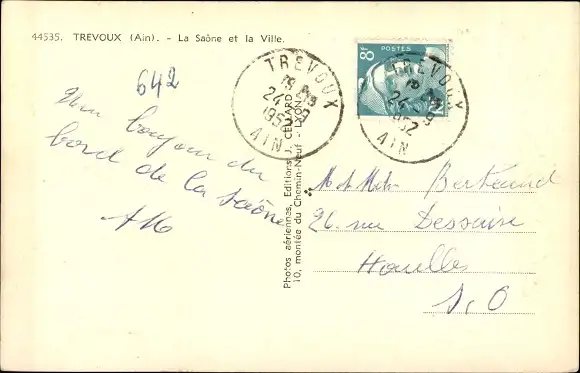 44535. TREVOUX (Ain). - La Saône et la Ville.
642
Un bonjour du
bord de la Saône
Photos aériennes, Editions J. CELLARD
10, montée du Chemin-Neuf - LYON
TREVOUX
24 - 9
1952
AIN
8F POSTES
TREVOUX
24 - 9
1952
AIN
M et Mme Bertrand
26 rue Dessaire
Houilles
S. O